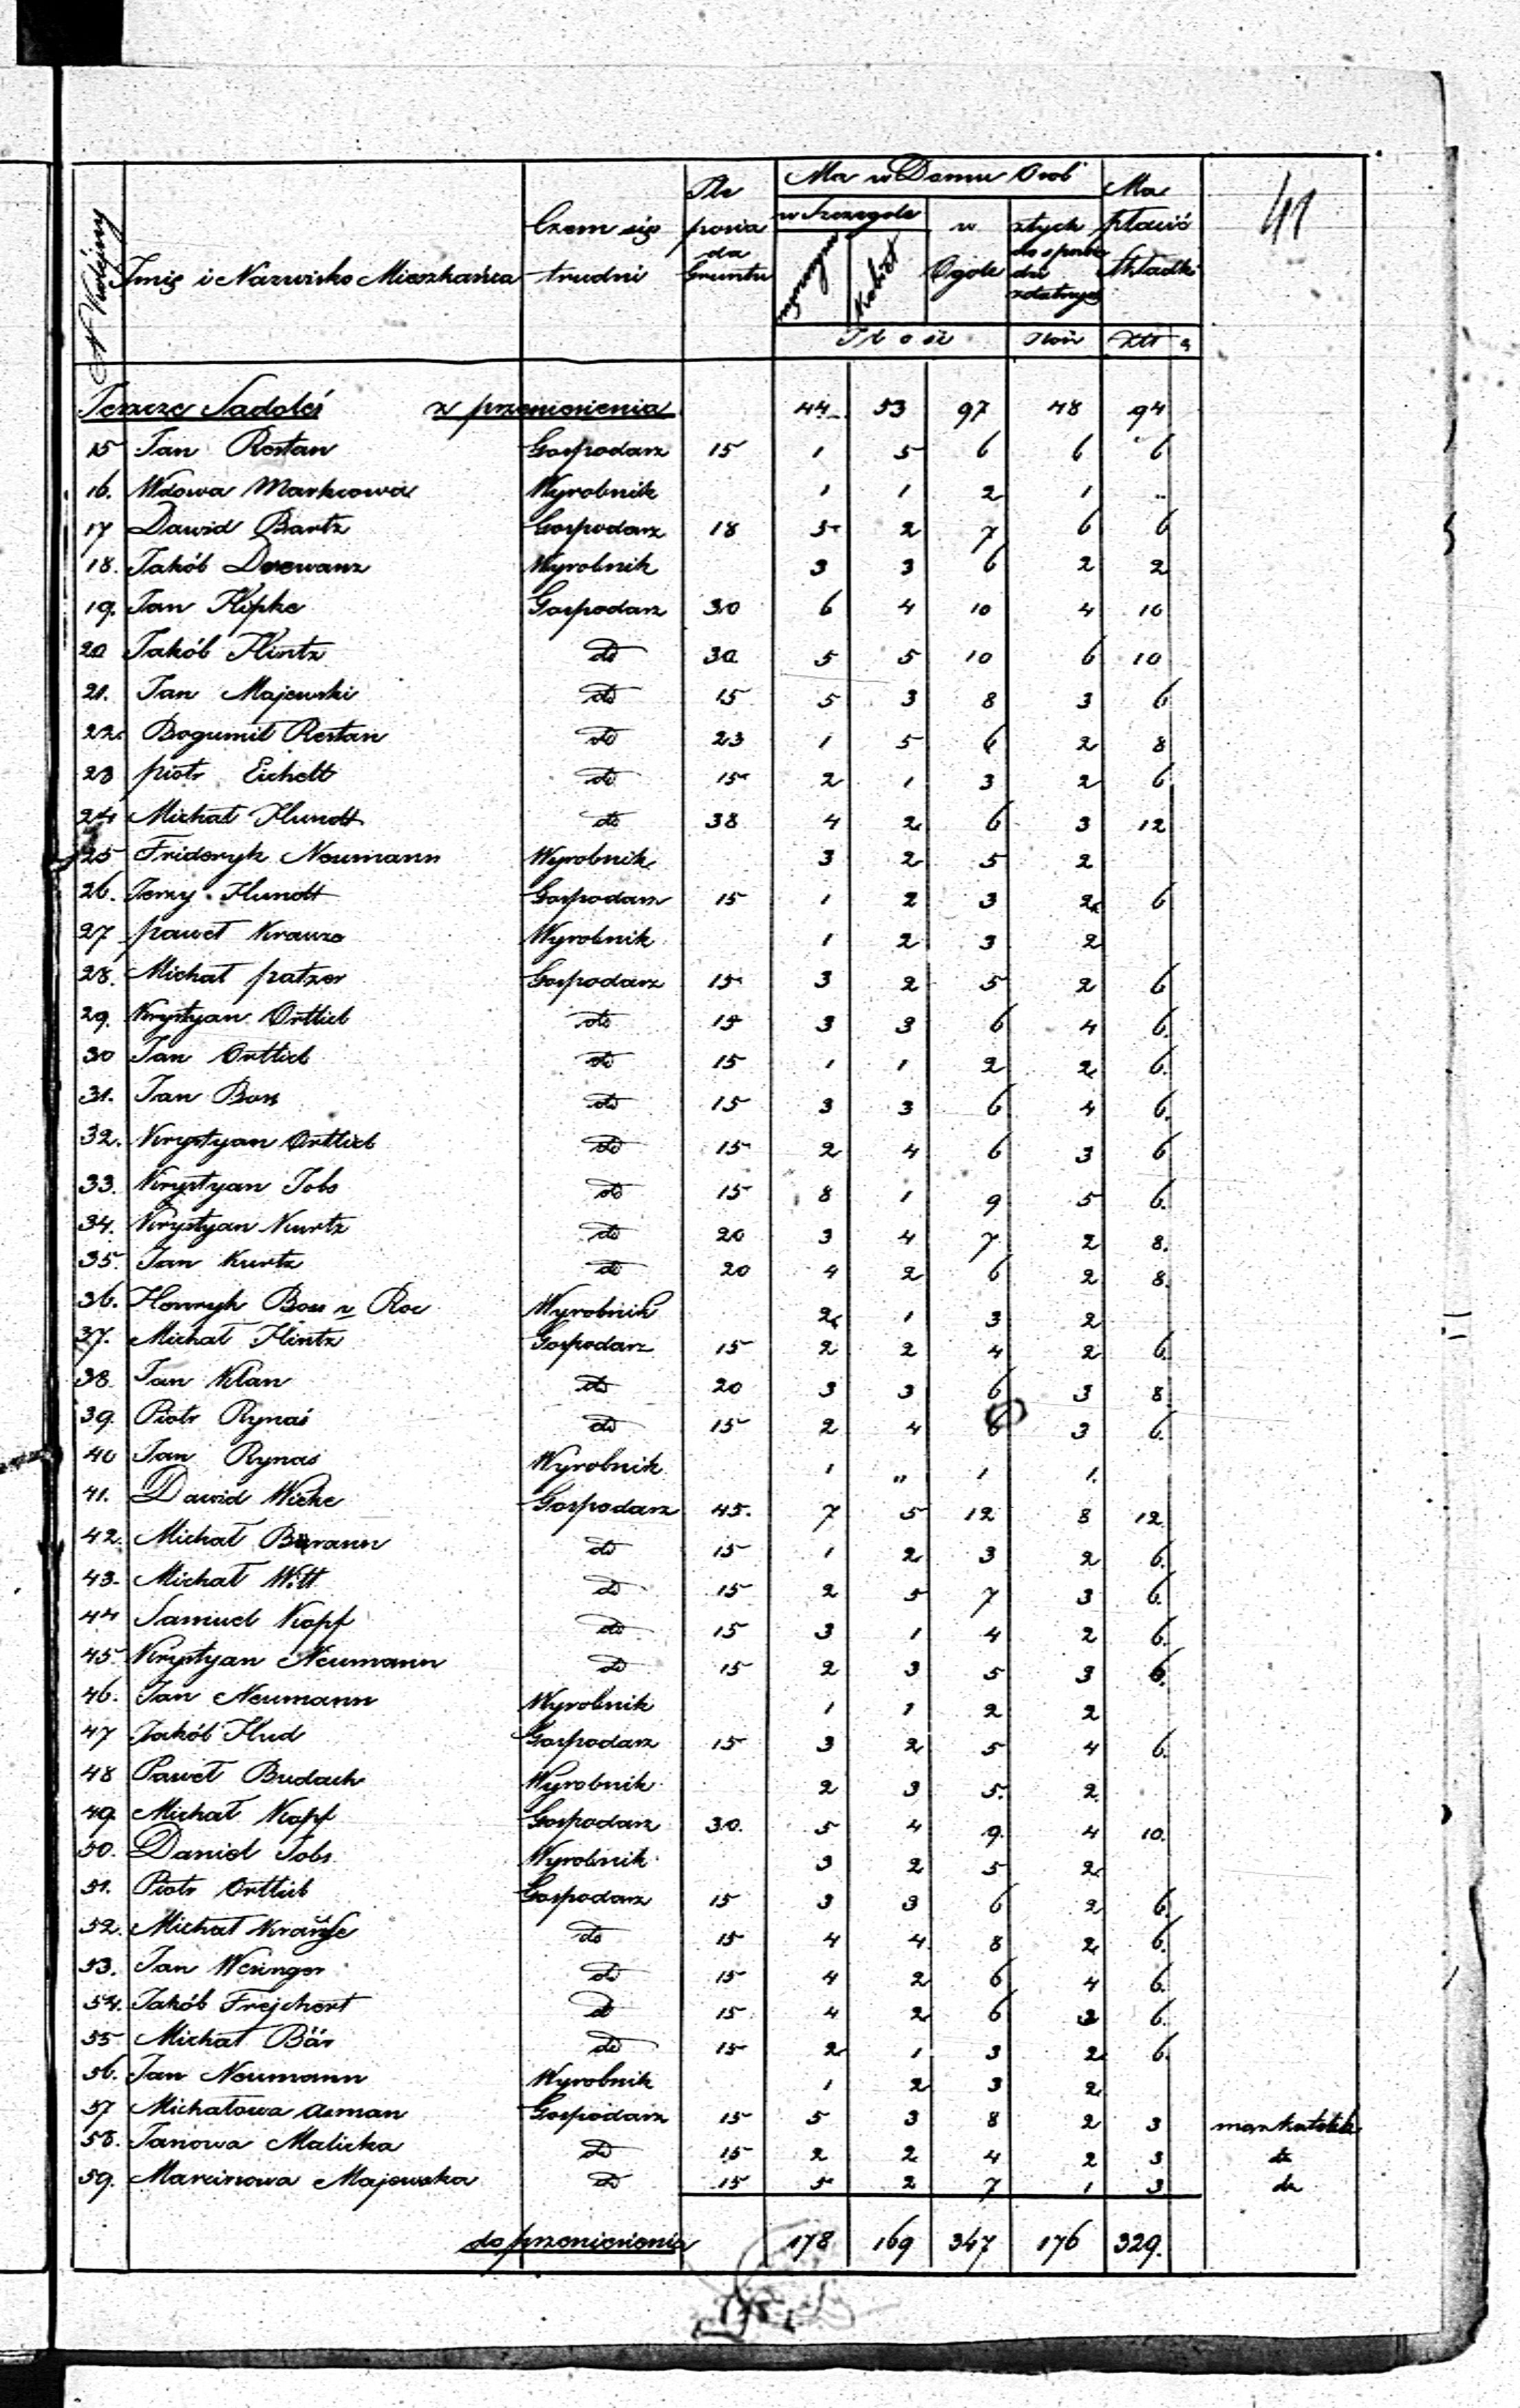 41
N Kolejny
Imię i Nazwisko Mieszkańca
Czem się trudni
Ile posiada Gruntu
Ma w Domu Osob
w Szczegole
mężczyzn
Kobiet
w Ogole
z tych do spowiedzi zdatnych
Ma płacić Składki
Ilość Ilość Złt g
Jeszcze Sadoleś z przeniesienia 44 53 97 48 94
15 Jan Restan Gospodarz 15 1 5 6 6 6
16. Wdowa Markowa Wyrobnik 1 1 2 1 "
17 Dawid Bartz Gospodarz 18 5 2 7 6 6
18. Jakób Drewanz Wyrobnik 3 3 6 2 2
19. Jan Hipke Gospodarz 30 6 4 10 4 10
20 Jakób Hintz do 30 5 5 10 6 10
21. Jan Majewski do 15 5 3 8 3 6
22. Bogumił Restan do 23 1 5 6 2 8
23 piotr Eichelt do 15 2 1 3 2 6
24 Michał Hundt do 38 4 2 6 3 12
25 Frideryk Neumann Wyrobnik 3 2 5 2
26. Jerzy Hundt Gospodarz 15 1 2 3 2 6
27 paweł Krauze Wyrobnik 1 2 3 2
28. Michał patzer Gospodarz 15 3 2 5 2 6
29. Krystyan Ortlieb do 15 3 3 6 4 6.
30 Jan Ortlieb do 15 1 1 2 2 6.
31. Jan Boss do 15 3 3 6 4 6.
32. Krystyan Ortlieb do 15 2 4 6 3 6
33. Krystyan Jobs do 15 8 1 9 5 6.
34. Krystyan Kurtz do 20 3 4 7 2 8.
35. Jan Kurtz do 20 4 2 6 2 8.
36. Henryk Boss v Roc Wyrobnik 2 1 3 2
37. Michał Hintz Gospodarz 15 2 2 4 2 6.
38 Jan Klan do 20 3 3 6 3 8
39. Piotr Rynaś do 15 2 4 6 3 6.
40 Jan Rynas Wyrobnik 1 " 1 1.
41. Dawid Wicke Gospodarz 45. 7 5 12 8 12
42. Michał Burann do 15 1 2 3 2 6.
43. Michał Witt do 15 2 5 7 3 6.
44 Samuel Kopf do 15 3 1 4 2 6.
45. Krystyan Neumann do 15 2 3 5 3 6.
46. Jan Neumann Wyrobnik 1 1 2 2
47 Jakób Hud Gospodarz 15 3 2 5 4 6.
48 Paweł Budach Wyrobnik 2 3 5. 2.
49. Michał Kopf Gospodarz 30. 5 4 9. 4 10.
50. Daniel Jobs Wyrobnik 3 2 5 2
51. Piotr Ortlieb Gospodarz 15 3 3 6 2 6.
52. Michał Krauße do 15 4 4 8 2 6.
53. Jan Weünger do 15 4 2 6 4 6.
54. Jakób Frejchert do 15 4 2 6 3 6.
55 Michał Bär do 15 2 1 3 2 6.
56. Jan Neumann Wyrobnik 1 2 3 2
57 Michałowa Asman Gospodarz 15 5 3 8 2 3 mąż katolik
58. Janowa Malicka do 15 2 2 4 2 3 do
59. Marcinowa Majewska do 15 5 2 7 1 3 do
do przeniesienia 178 169 347 176 329.